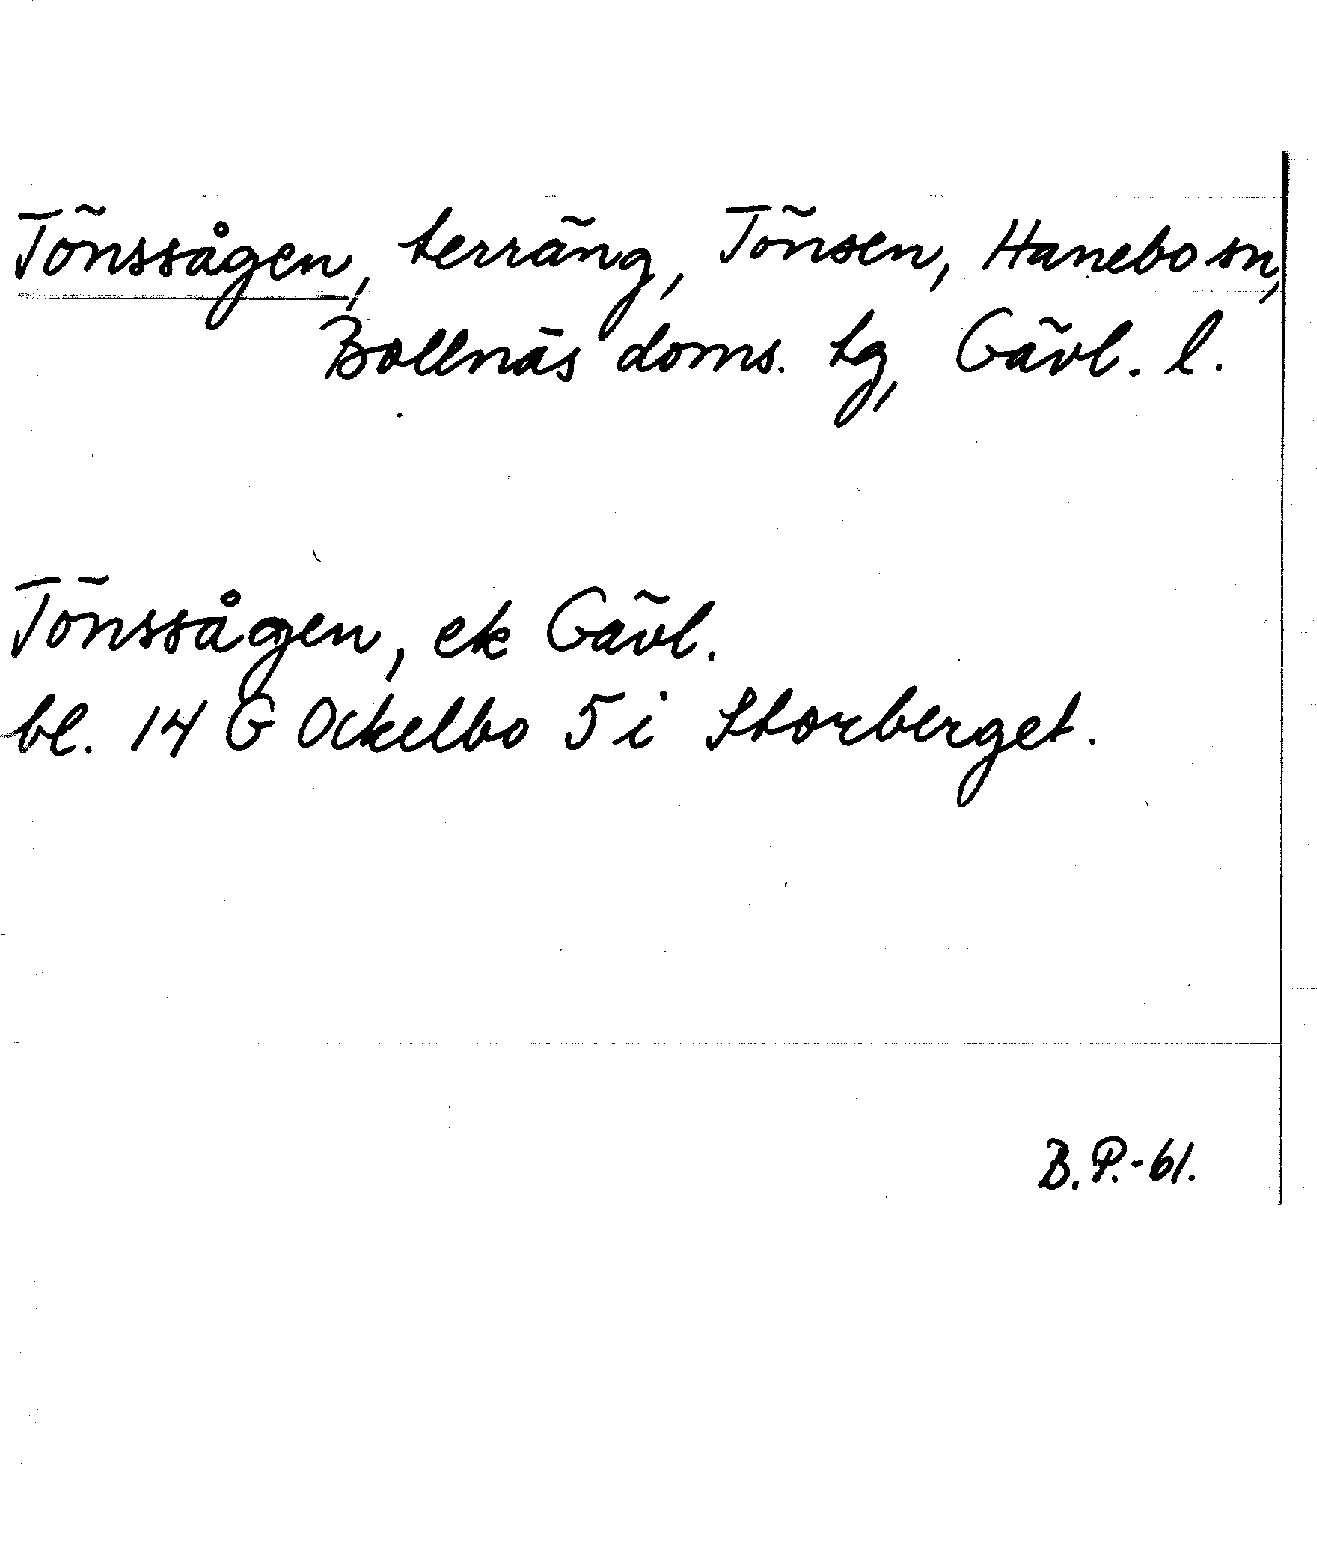 Tönssågen, terräng, Tönsen, Hanebo sn,
Bollnäs doms. tg, Gävl. l.
Tönssågen, ek Gävl.
bl. 14 G Ockelbo 5 i Storberget.
B.P.-61.